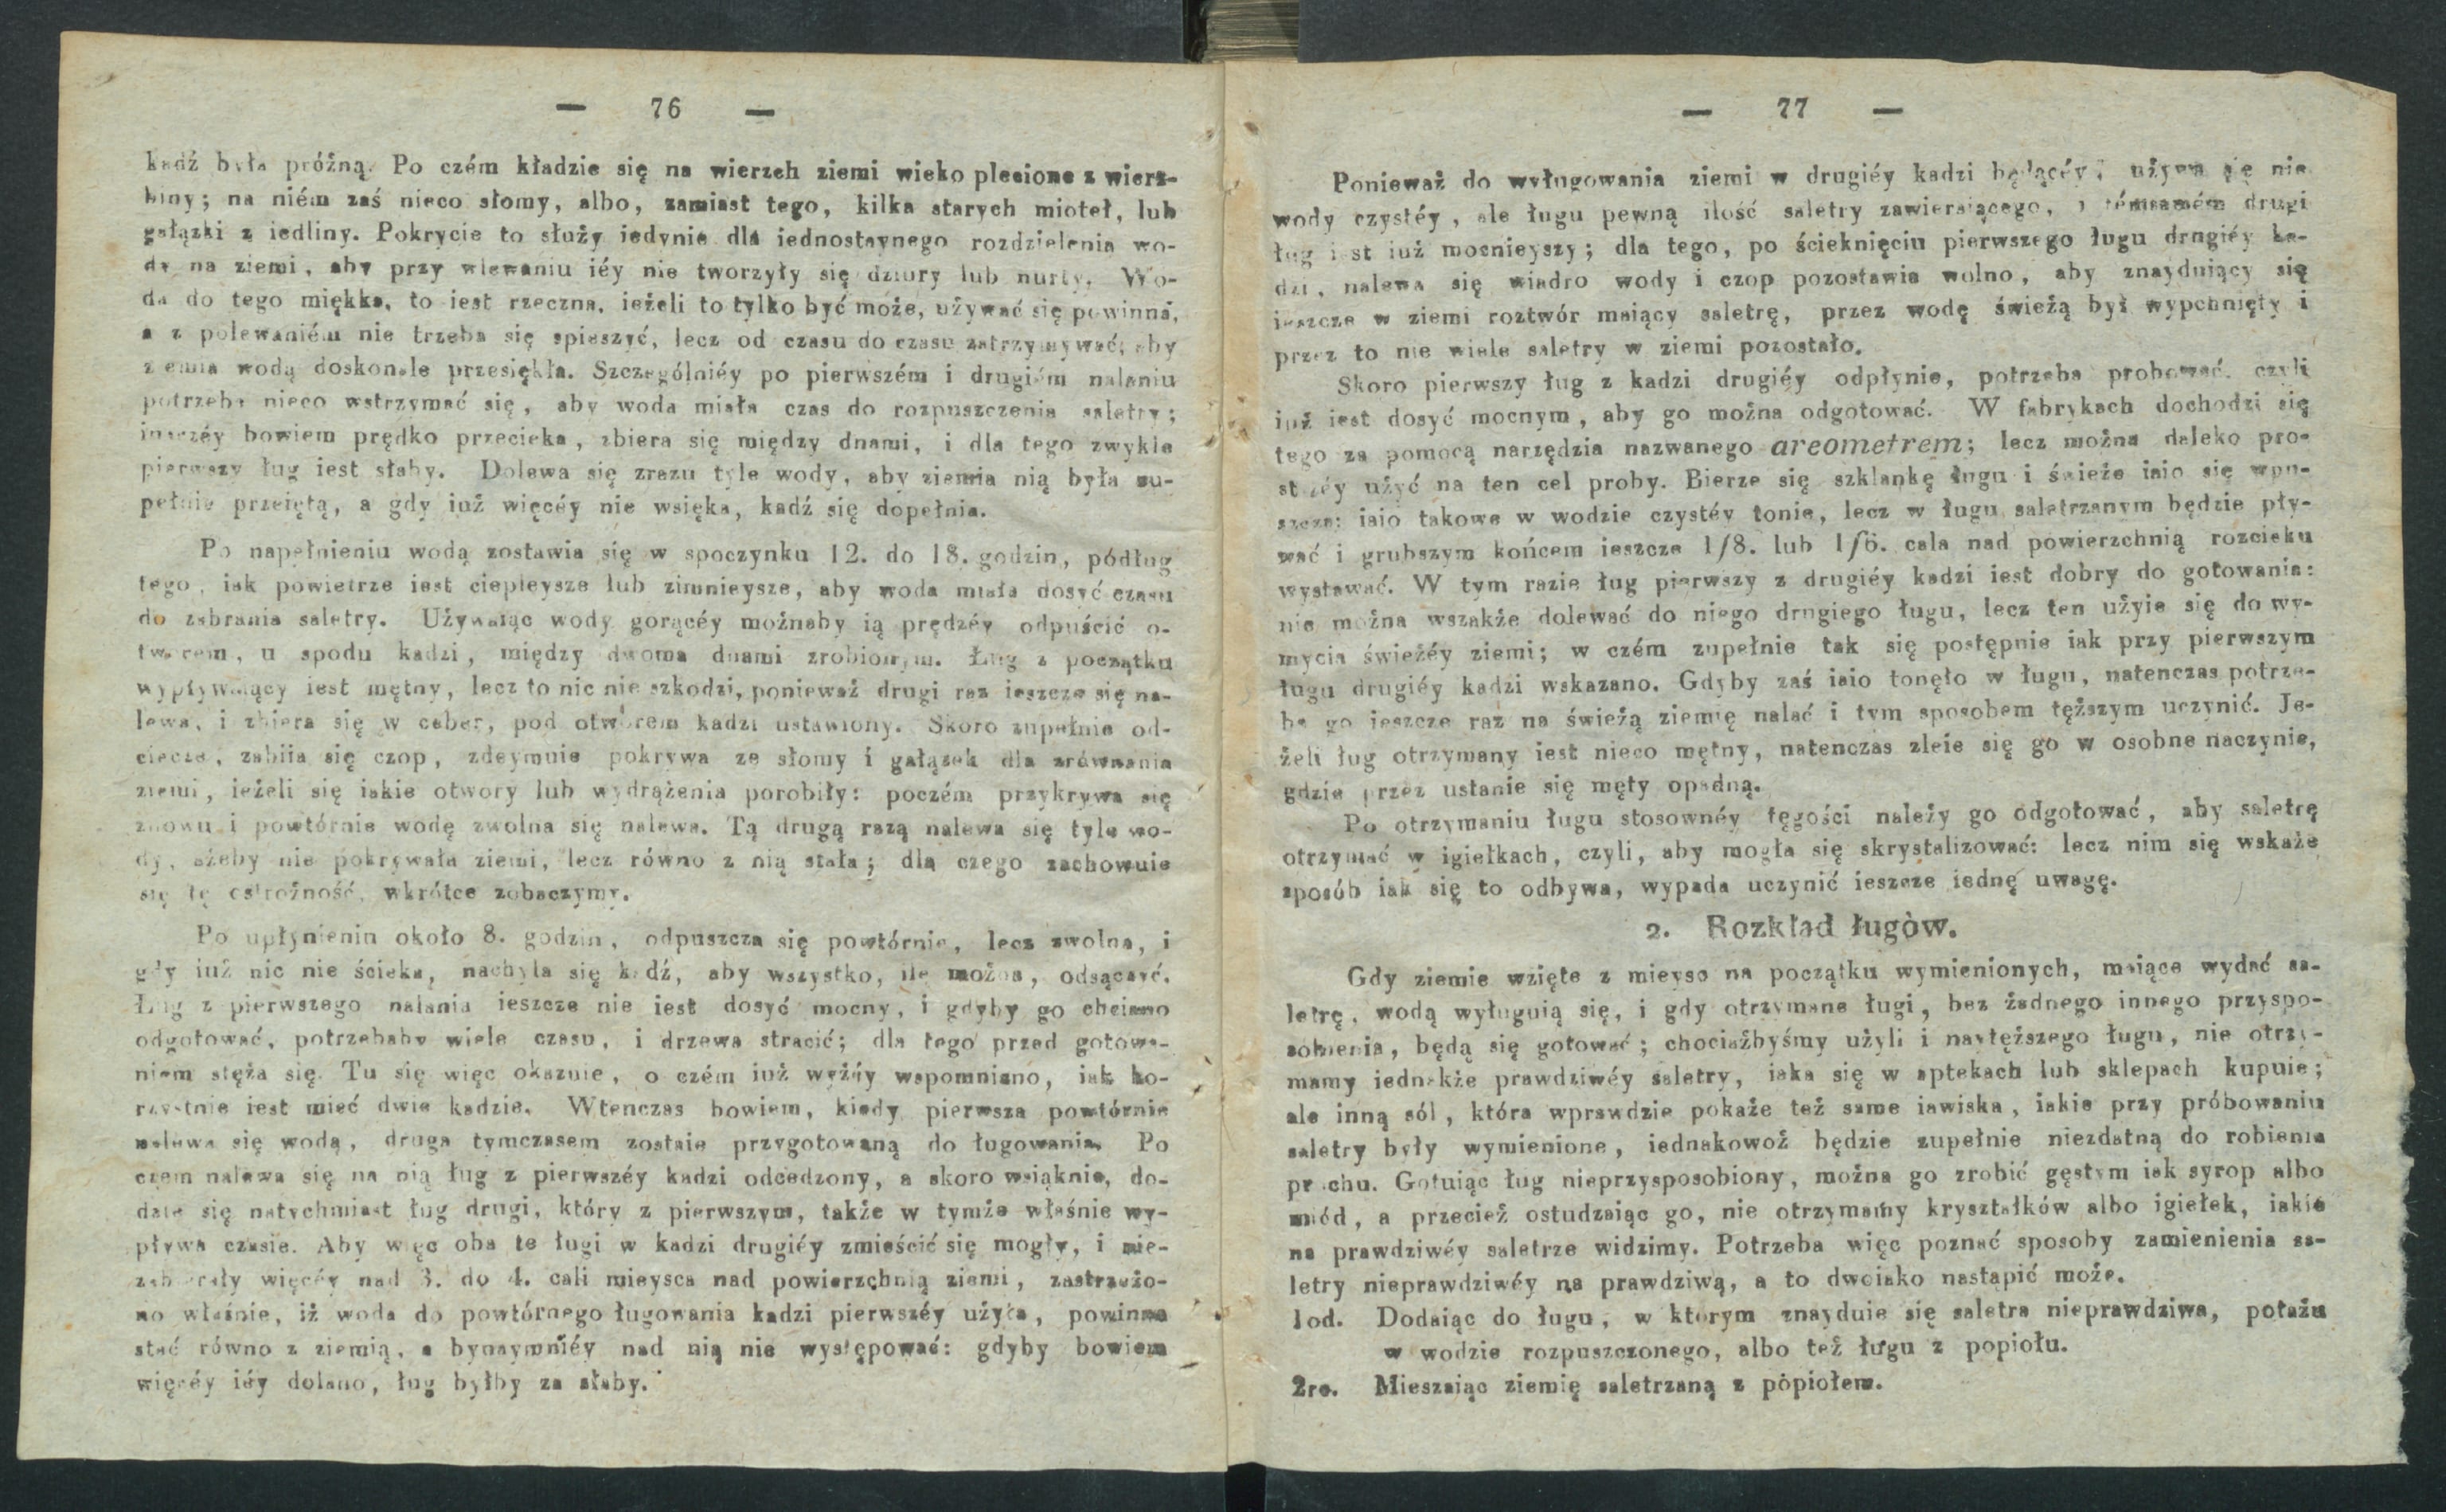 — 76 —
kadź była próżną. Po czém kładzie się na wierzch ziemi wieko plecione z wierz-
biny; na niém zaś nieco słomy, albo, zamiast tego, kilka starych mioteł, lub
gałązki z iedliny. Pokrycie to służy iedynie dla iednostaynego rozdzielenia wo-
dy na ziemi, aby przy wlewaniu iéy nie tworzyły się dziury lub nurty. Wo-
da do tego miękka, to iest rzeczna, ieżeli to tylko być może, używać się powinna,
a z polewaniém nie trzeba się spieszyć, lecz od czasu do czasu zatrzymywać, aby
ziemia wodą doskonale przesiękła. Szczególniéy po pierwszém i drugiém nalaniu
potrzeba nieco wstrzymać się, aby woda miała czas do rozpuszczenia saletry;
inaczéy bowiem prędko przecieka, zbiera się między dnami, i dla tego zwykle
pierwszy ług iest słaby. Dolewa się zrazu tyle wody, aby ziemia nią była zu-
pełnie przeiętą, a gdy iuż więcéy nie wsięka, kadź się dopełnia.
Po napełnieniu wodą zostawia się w spoczynku 12. do 18. godzin, pódług
tego, iak powietrze iest ciepleysze lub zimnieysze, aby woda miała dosyć czasu
do zabrania saletry. Używaiąc wody gorącéy możnaby ią prędzéy odpuścić o-
tworem, u spodu kadzi, między dwoma dnami zrobionym. Ług z początku
wypływaiący iest mętny, lecz to nic nie szkodzi, ponieważ drugi raz ieszcze się na-
lewa, i zbiera się w ceber, pod otworem kadzi ustawiony. Skoro zupełnie od-
ciecze, zabiia się czop, zdeymuie pokrywa ze słomy i gałązek dla zrównania
ziemi, ieżeli się iakie otwory lub wydrążenia porobiły: poczém przykrywa się
znowu i powtórnie wodę zwolna się nalewa. Tą drugą razą nalewa się tyle wo-
dy, ażeby nie pokrywała ziemi, lecz równo z nią stała; dla czego zachowuie
się tę ostrożność, wkrótce zobaczymy.
Po upłynieniu około 8. godzin, odpuszcza się powtórnie, lecz zwolna, i
gdy iuż nic nie ścieka, nachyla się kadź, aby wszystko, ile można, odsączyć.
Ług z pierwszego nalania ieszcze nie iest dosyć mocny, i gdyby go chciano
odgotować, potrzebaby wiele czasu, i drzewa stracić; dla tego przed gotowa-
niem stęża się. Tu się więc okazuie, o czém iuż wyżéy wspomniano, iak ko-
rzystnie iest mieć dwie kadzie. Wtenczas bowiem, kiedy pierwsza powtórnie
nalewa się wodą, druga tymczasem zostaie przygotowaną do ługowania. Po
czem nalewa się na nią ług z pierwszéy kadzi odcedzony, a skoro wsiąknie, do-
daie się natychmiast ług drugi, który z pierwszym, także w tymże właśnie wy-
pływa czasie. Aby więc oba te ługi w kadzi drugiéy zmieścić się mogły, i nie-
zabierały więcéy nad 3. do 4. cali mieysca nad powierzchnią ziemi, zastrzeżo-
no właśnie, iż woda do powtórnego ługowania kadzi pierwszéy użyta, powinna
stać równo z ziemią, a bynaymniéy nad nią nie występować: gdyby bowiem
więcéy iéy dolano, ług byłby za słaby.
— 77 —
Ponieważ do wyługowania ziemi w drugiéy kadzi będącéy, używa się nie
wody czystéy, ale ługu pewną ilość saletry zawieraiącego, i témsamém drugi
ług iest iuż mocnieyszy; dla tego, po ścieknięciu pierwszego ługu drugiéy ka-
dzi, nalewa się wiadro wody i czop pozostawia wolno, aby znayduiący się
ieszcze w ziemi roztwór maiący saletrę, przez wodę świeżą był wypchnięty i
przez to nie wiele saletry w ziemi pozostało.
Skoro pierwszy ług z kadzi drugiéy odpłynie, potrzeba probować, czyli
iuż iest dosyć mocnym, aby go można odgotować. W fabrykach dochodzi się
tego za pomocą narzędzia nazwanego areometrem; lecz można daleko pro-
stszéy użyć na ten cel proby. Bierze się szklankę ługu i świeże iaio się wpu-
szcza: iaio takowe w wodzie czystéy tonie, lecz w ługu saletrzanym będzie pły-
wać i grubszym końcem ieszcze 1/8. lub 1/6. cala nad powierzchnią rozcieku
wystawać. W tym razie ług pierwszy z drugiéy kadzi iest dobry do gotowania:
nie można wszakże dolewać do niego drugiego ługu, lecz ten użyie się do wy-
mycia świeżéy ziemi; w czém zupełnie tak się postępnie iak przy pierwszym
ługu drugiéy kadzi wskazano. Gdyby zaś iaio tonęło w ługu, natenczas potrze-
ba go ieszcze raz na świeżą ziemię nalać i tym sposobem tęższym uczynić. Je-
żeli ług otrzymany iest nieco mętny, natenczas zleie się go w osobne naczynie,
gdzie przez ustanie się męty opadną.
Po otrzymaniu ługu stosownéy tęgości należy go odgotować, aby saletrę
otrzymać w igiełkach, czyli, aby mogła się skrystalizować: lecz nim się wskaże
sposób iak się to odbywa, wypada uczynić ieszcze iednę uwagę.
2. Rozkład ługów.
Gdy ziemie wzięte z mieysc na początku wymienionych, maiące wydać sa-
letrę, wodą wyługuią się, i gdy otrzymane ługi, bez żadnego innego przyspo-
sobienia, będą się gotować; chociażbyśmy użyli i naytęższego ługu, nie otrzy-
mamy iednakże prawdziwéy saletry, iaka się w aptekach lub sklepach kupuie;
ale inną sól, która wprawdzie pokaże też same iawiska, iakie przy próbowaniu
saletry były wymienione, iednakowoż będzie zupełnie niezdatną do robienia
prochu. Gotuiąc ług nieprzysposobiony, można go zrobić gęstym iak syrop albo
miód, a przecież ostudzaiąc go, nie otrzymamy kryształków albo igiełek, iakie
na prawdziwéy saletrze widzimy. Potrzeba więc poznać sposoby zamienienia sa-
letry nieprawdziwéy na prawdziwą, a to dwoiako nastąpić może.
1od. Dodaiąc do ługu, w którym znayduie się saletra nieprawdziwa, potażu
w wodzie rozpuszczonego, albo też ługu z popiołu.
2re. Mieszaiąc ziemię saletrzaną z popiołem.